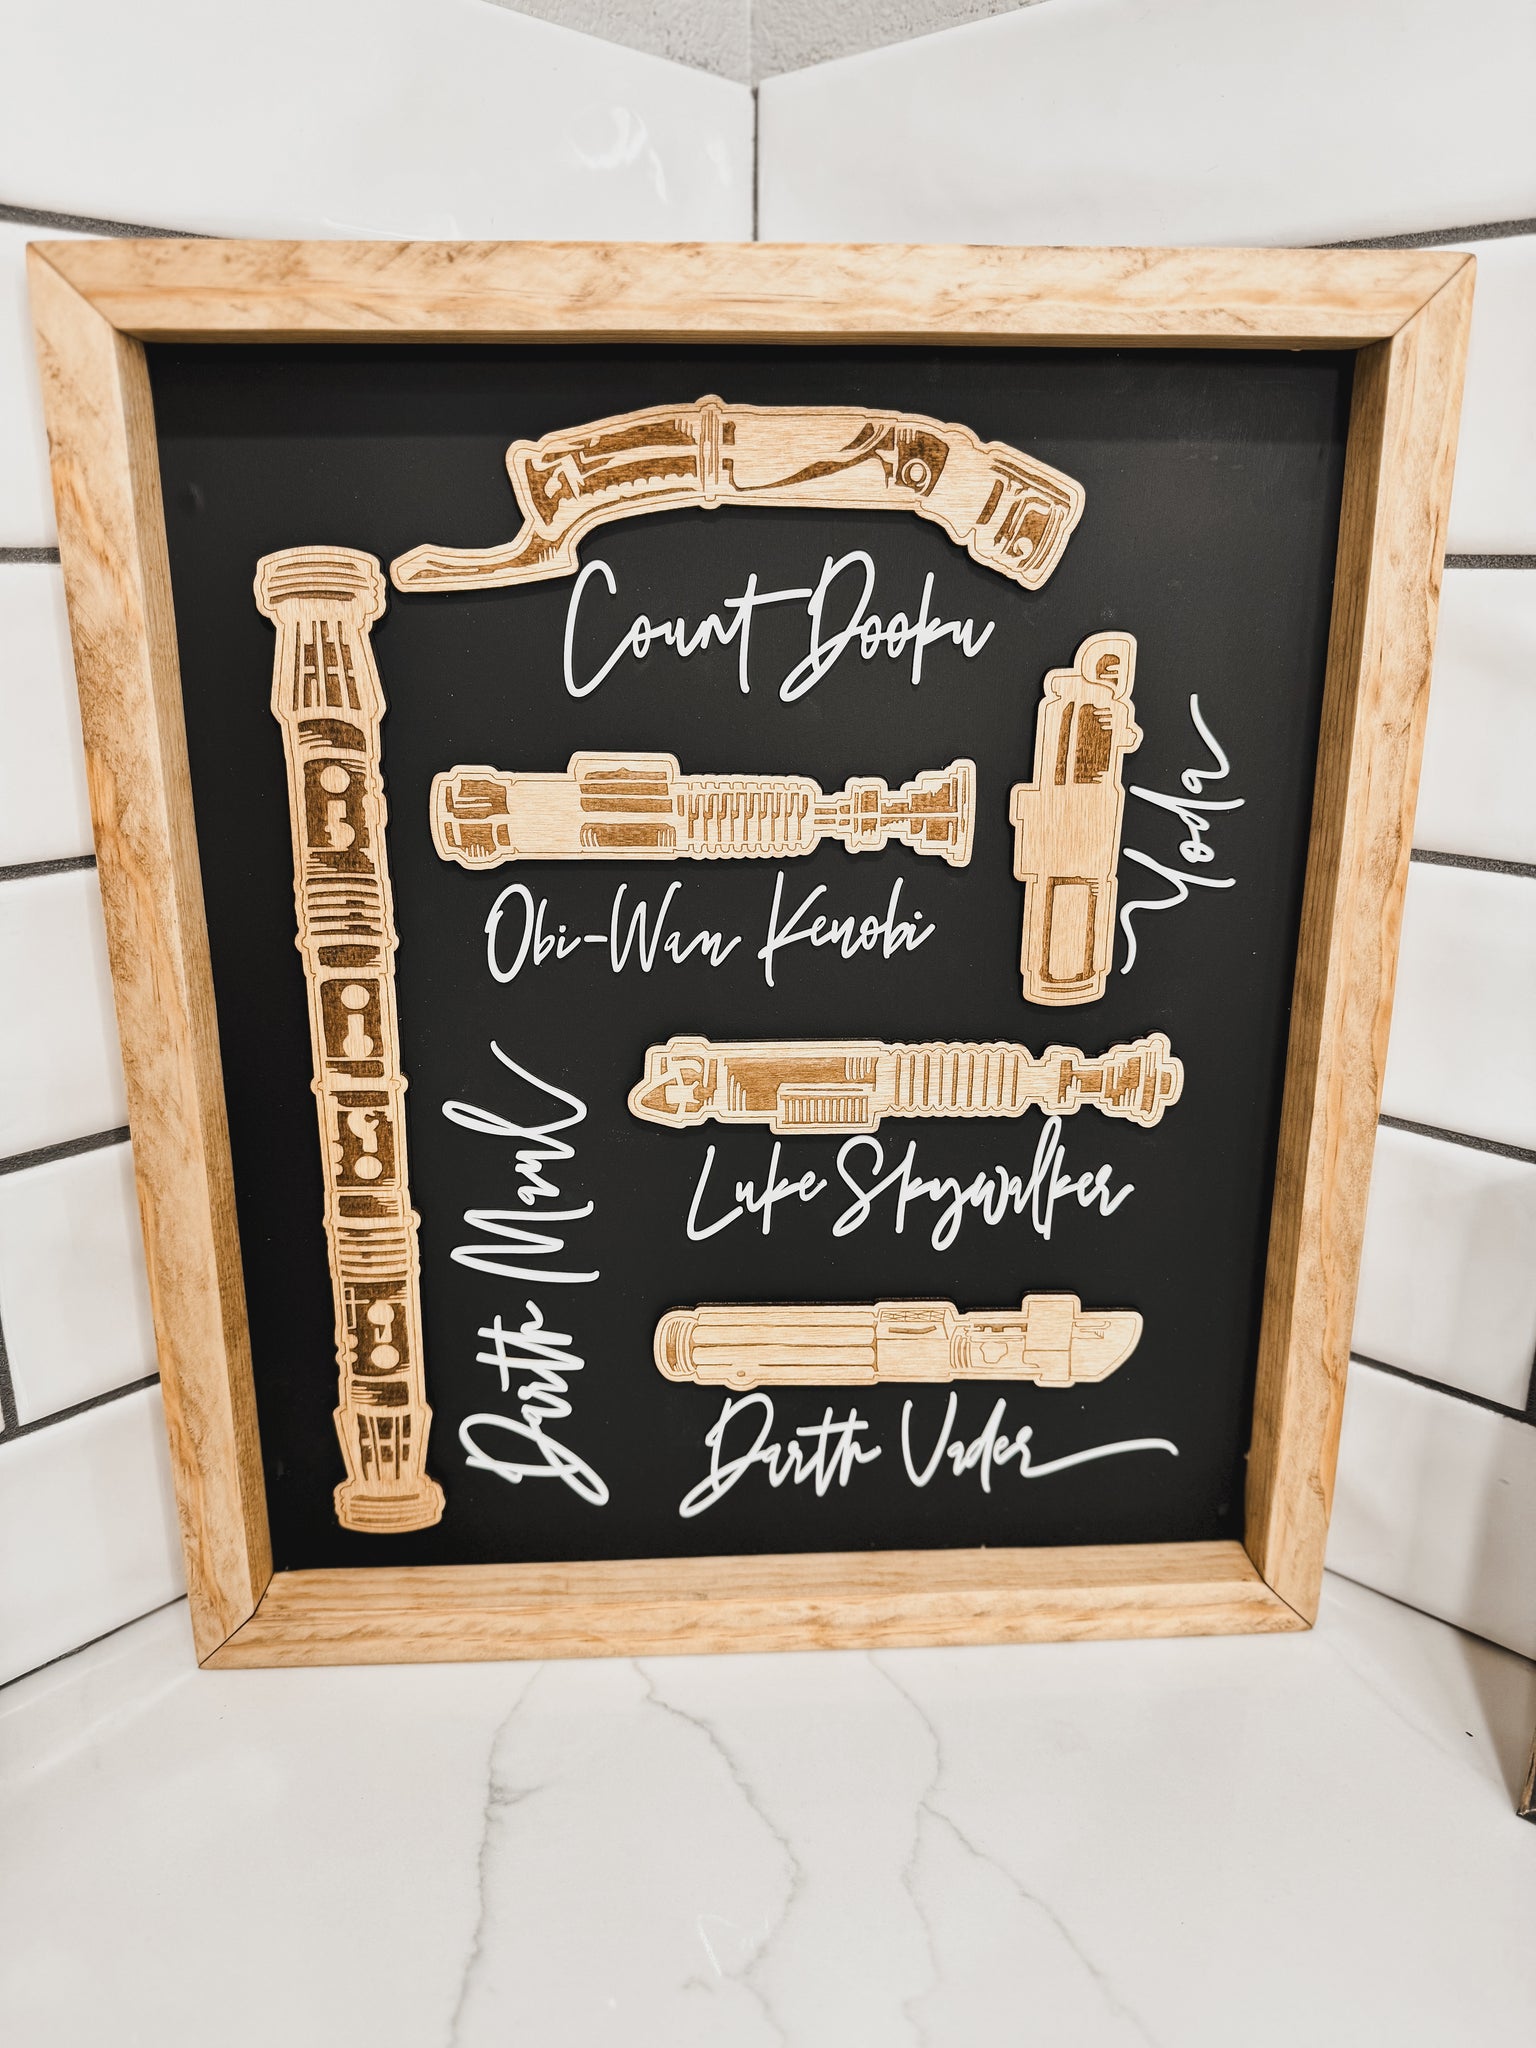 Count Dooku
Yoda
Obi-Wan Kenobi
Darth Maul
Luke Skywalker
Darth Vader